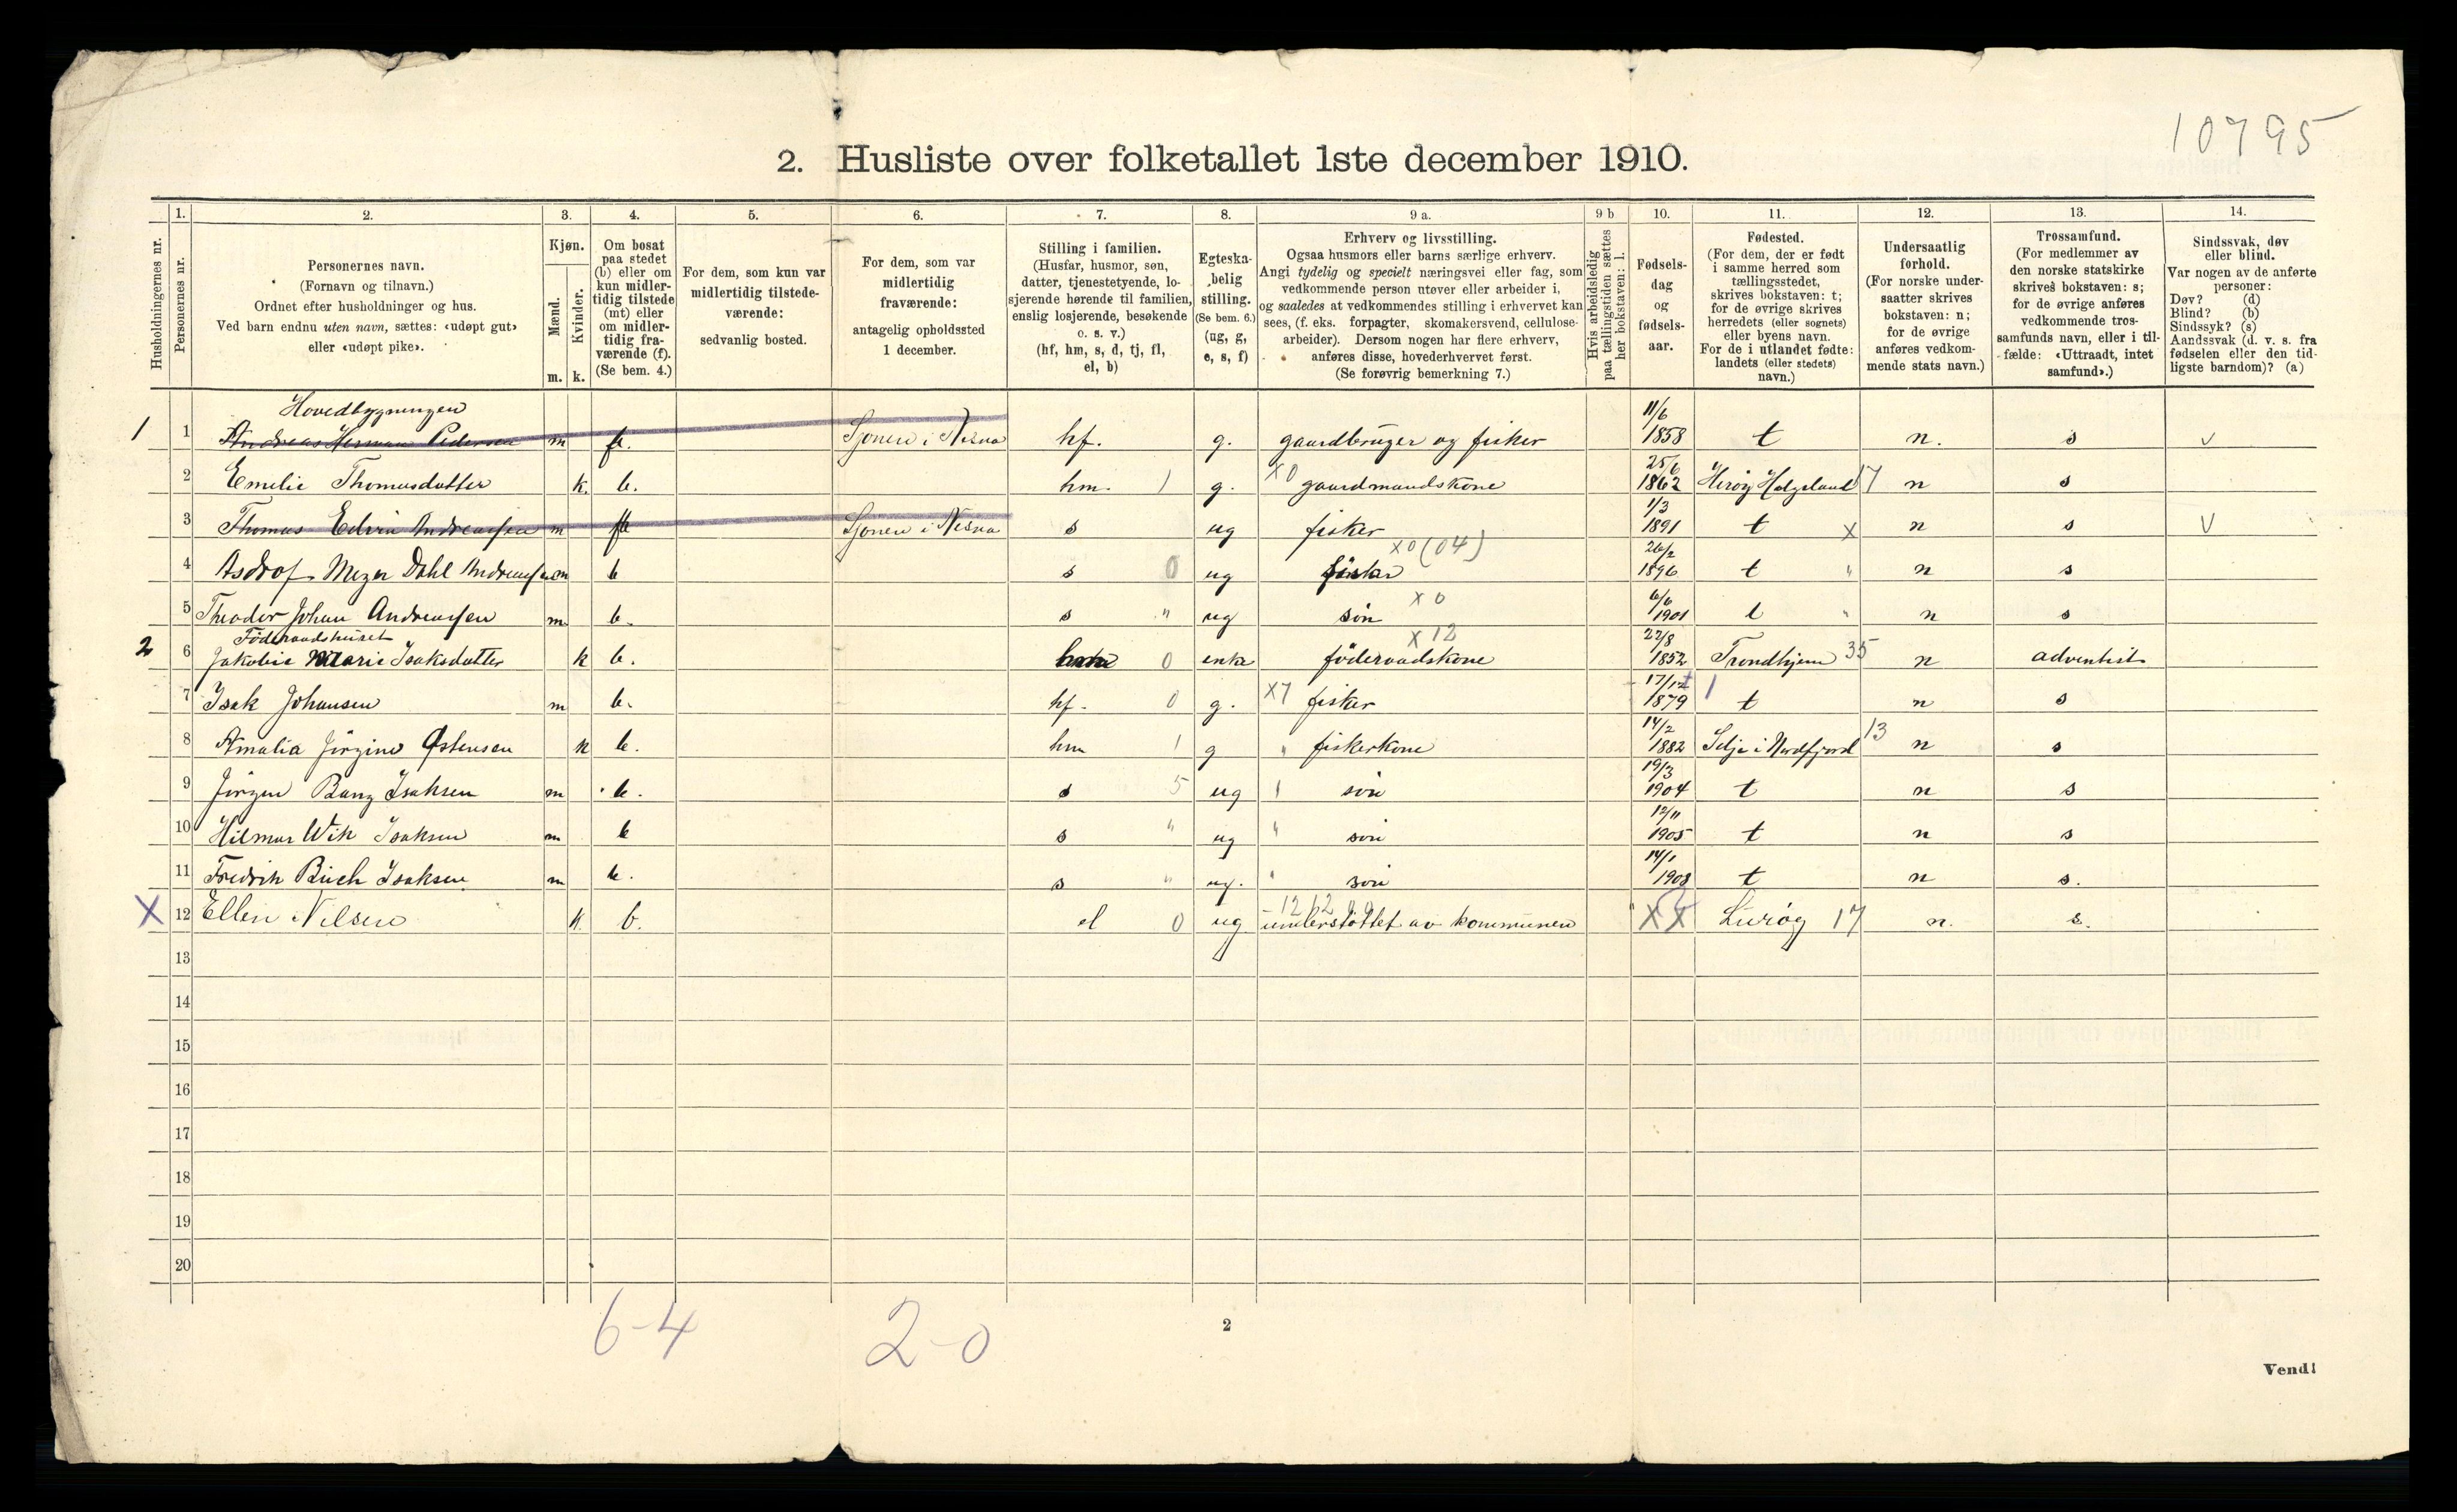 10795
2. Husliste over folketallet 1ste december 1910.
Husholdningernes nr.
1.
Personernes nr.
2.
Personernes navn.
(Fornavn og tilnavn.)
Ordnet efter husholdninger og hus.
Ved barn endnu uten navn, sættes: «udøpt gut»
eller «udøpt pike».
3.
Kjøn.
Mænd.
Kvinder.
m. k.
4.
Om bosat
paa stedet
(b) eller om
kun midler-
tidig tilstede
(mt) eller
om midler-
tidig fra-
værende (f).
(Se bem. 4.)
5.
For dem, som kun var
midlertidig tilstede-
værende:
sedvanlig bosted.
6.
For dem, som var
midlertidig
fraværende:
antagelig opholdssted
1 december.
7.
Stilling i familien.
(Husfar, husmor, søn,
datter, tjenestetyende, lo-
sjerende hørende til familien,
enslig losjerende, besøkende
o. s. v.)
(hf, hm, s, d, tj, fl,
el, b)
8.
Egteska-
belig
stilling.
(Se bem. 6.)
(ug, g,
e, s, f)
9 a.
Erhverv og livsstilling.
Ogsaa husmors eller barns særlige erhverv.
Angi tydelig og specielt næringsvei eller fag, som
vedkommende person utøver eller arbeider i,
og saaledes at vedkommendes stilling i erhvervet kan
sees, (f. eks. forpagter, skomakersvend, cellulose-
arbeider). Dersom nogen har flere erhverv,
anføres disse, hovederhvervet først.
(Se forøvrig bemerkning 7.)
9 b
Hvis arbeidsledig
paa tællingstiden sættes
her bokstaven: l.
10.
Fødsels-
dag
og
fødsels-
aar.
11.
Fødested.
(For dem, der er født
i samme herred som
tællingsstedet,
skrives bokstaven: t;
for de øvrige skrives
herredets (eller sognets)
eller byens navn.
For de i utlandet fødte:
landets (eller stedets)
navn.)
12.
Undersaatlig
forhold.
(For norske under-
saatter skrives
bokstaven: n;
for de øvrige
anføres vedkom-
mende stats navn.)
13.
Trossamfund.
(For medlemmer av
den norske statskirke
skrives bokstaven: s;
for de øvrige anføres
vedkommende tros-
samfunds navn, eller i til-
fælde: «Uttraadt, intet
samfund».)
14.
Sindssvak, døv
eller blind.
Var nogen av de anførte
personer:
Døv? (d)
Blind? (b)
Sindssyk? (s)
Aandssvak (d. v. s. fra
fødselen eller den tid-
ligste barndom)? (a)
Hovedbygningen
1 1 Andreas Herman Pedersen m f. Sjonen i Nesna hf. g. gaardbruger og fisker 11/6 1858 t n. s v
2 Emelie Thomasdatter k. b. hm. 1 g. x0 gaardmandskone 25/6 1862 Herøy Helgeland 17 n s
3 Thomas Edvin Andreassen m f Sjonen i Nesna s ug fisker 1/3 1891 t x n s v
4 Meyer Dahl Andreassen m b s 0 ug fisker x0 (04) 26/2 1896 t " n s
5 Theodor Johan Andreassen m. b. s " ug søn x0 6/6 1901 t " n s
Føderaadshuset
2 6 Jakobie Marie Isaksdatter k b. 0 enke føderaadskone x12 22/8 1852 Trondhjem 35 n adventist
7 Isak Johansen m b. hf. 0 g. x7 fisker 17/12 1879 1 t n s
8 Amalia Jörgine Østensen k b. hm 1 g " fiskerkone 14/2 1882 Selje i Nordfjord 13 n s
9 Jörgen Bang Isaksen m b. s 5 ug søn 19/3 1904 t n s
10 Hilmar Wik Isaksen m b s " ug " søn 12/11 1905 t n s
11 Fredrik Buch Isaksen m b. s " ug. " søn 14/1 1908 t n s.
X 12 Ellen Nilsen k. b. el 0 ug understøttet av kommunen XX Lurøy 17 n. s.
13
14
15
16
17
18
19
20
6-4
2-0
2
Vend!